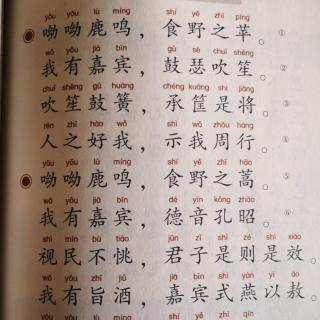 yōu yōu lù míng shí yě zhī píng
呦呦鹿鸣，食野之苹。①
wǒ yǒu jiā bīn gǔ sè chuī shēng
我有嘉宾，鼓瑟吹笙。②
chuī shēng gǔ huáng chéng kuāng shì jiāng
吹笙鼓簧，承筐是将。③
rén zhī hào wǒ shì wǒ zhōu háng
人之好我，示我周行。④
yōu yōu lù míng shí yě zhī hāo
呦呦鹿鸣，食野之蒿。⑤
wǒ yǒu jiā bīn dé yīn kǒng zhāo
我有嘉宾，德音孔昭。⑥
shì mín bù tiāo jūn zǐ shì zé shì xiào
视民不恌，君子是则是效。
wǒ yǒu zhǐ jiǔ jiā bīn shì yàn yǐ áo
我有旨酒，嘉宾式燕以敖。
yōu yōu lù míng shí yě zhī qín